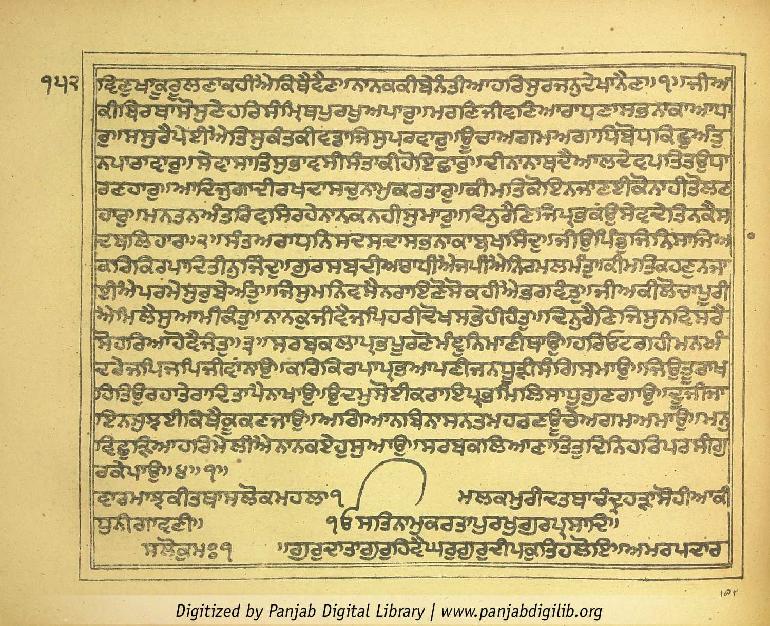 ੧੫੨ ਵਿਣੁਖਾਕੂਰੂਲਣਾਕਹੀਐਕਿਥੈਵੈਣ॥ਨਾਨਕਕੀਬੇਨੰਤੀਆਹਰਿਸੁਰਜਨੁਦੇਖਾਨੈਣ॥੧॥ਜੀਅ
ਕੀਬਿਰਥਾਸੋਸੁਣੇਹਰਿਸੰਮ੍ਰਿਥਪੁਰਖੁਅਪਾਰੁ॥ਮਰਣਿਜੀਵਣਿਆਰਾਧਣਾਸਭਨਾਕਾਆਧਾ
ਰੁ॥ਸਸੁਰੈਪੇਈਐਤਿਸੁਕੰਤਕੀਵਡਾਜਿਸੁਪਰਵਾਰੁ॥ਊਚਾਅਗਮਅਗਾਧਿਬੋਧਕਿਛੁਅੰਤੁ
ਨਪਾਰਾਵਾਰੁ॥ਸੇਵਾਸਾਤਿਸੁਭਾਵਸੀਸੰਤਾਕੀਹੋਇਛਾਰੁ॥ਦੀਨਾਨਾਥਦੈਆਲਦੇਵਪਤਿਤਉਧਾ
ਰਣਹਾਰੁ॥ਆਦਿਜੁਗਾਦੀਰਖਦਾਸਚੁਨਾਮੁਕਰਤਾਰੁ॥ਕੀਮਤਿਕੋਇਨਜਾਣਈਕੋਨਾਹੀਤੋਲਣ
ਹਾਰੁ॥ਮਨਤਨਅੰਤਰਿਵਸਿਰਹੇਨਾਨਕਨਹੀਸੁਮਾਰੁ॥ਦਿਨੁਰੈਣਿਜਿਪ੍ਰਭਕੰਉਸੇਵਦੇਤਿਨਕੈਸ
ਦਬਲਿਹਾਰ॥੨॥ਸੰਤਅਰਾਧਨਿਸਦਸਦਾਸਭਨਾਕਾਬਖਸਿੰਦੁ॥ਜੀਉਪਿੰਡੁਜਿਨਿਸਾਜਿਆ
ਕਰਿਕਿਰਪਾਦਿਤੀਨੁਜਿੰਦੁ॥ਗੁਰਸਬਦੀਅਰਾਧੀਐਜਪੀਐਨਿਰਮਲਮੰਤੁ॥ਕੀਮਤਿਕਹਣੁਨਜਾ
ਈਐਪਰਮੇਸੁਰੁਬੇਅੰਤੁ॥ਜਿਸੁਮਨਿਵਸੈਨਰਾਇਣੋਸੋਕਹੀਐਭਗਵੰਤੁ॥ਜੀਅਕੀਲੋਚਾਪੂਰੀ
ਐਮਿਲੈਸੁਆਮੀਕੰਤੁ॥ਨਾਨਕੁਜੀਵੈਜਪਿਹਰੀਦੋਖਸਭੇਹੀਹੰਤੁ॥ਦਿਨੁਰੈਣਿਜਿਸੁਨਵਿਸਰੈ
ਸੋਹਰਿਆਹੋਵੈਜੰਤੁ॥੩॥ਸਰਬਕਲਾਪ੍ਰਭਪੂਰਣੋਮੰਞੁਨਿਮਾਣੀਥਾਉ॥ਹਰਿਓਟਗਹੀਮਨਅੰ
ਦਰੇਜਪਿਜਪਿਜੀਵਾਂਨਾਉ॥ਕਰਿਕਿਰਪਾਪ੍ਰਭਆਪਣੀਜਨਧੂੜੀਸੰਗਿਸਮਾਉ॥ਜਿਉਤੂੰਰਾਖ
ਹਿਤਿਉਰਹਾਤੇਰਾਦਿਤਾਪੈਨਾਖਾਉ॥ਉਦਮੁਸੋਈਕਰਾਇਪ੍ਰਭਮਿਲਿਸਾਧੂਗੁਣਗਾਉ॥ਦੂਜੀਜਾ
ਇਨਸੁਝਈਕਿਥੈਕੂਕਣਜਾਉ॥ਅਗਿਆਨਬਿਨਾਸਨਤਮਹਰਣਊਚੇਅਗਮਅਮਾਉ॥ਮਨੁ
ਵਿਛੁੜਿਆਹਰਿਮੇਲੀਐਨਾਨਕਏਹੁਸੁਆਉ॥ਸਰਬਕਲਿਆਣਾਤਿਤੁਦਿਨਿਹਰਿਪਰਸੀਗੁ
ਰਕੇਪਾਉ॥੪॥੧॥
ਵਾਰਮਾਝਕੀਤਥਾਸਲੋਕਮਹਲਾ੧ ਮਲਕਮੁਰੀਦਤਥਾਚੰਦ੍ਰਹੜਾਸੋਹੀਆਕੀ
ਧੁਨੀਗਾਵਣੀ॥ ੴਸਤਿਨਾਮੁਕਰਤਾਪੁਰਖੁਗੁਰਪ੍ਰਸਾਦਿ॥
ਸਲੋਕੁਮਃ੧ ॥ਗੁਰੁਦਾਤਾਗੁਰੁਹਿਵੈਘਰੁਗੁਰੁਦੀਪਕੁਤਿਹਲੋਇ॥ਅਮਰਪਦਾਰ
Digitized by Panjab Digital Library | www.panjabdigilib.org